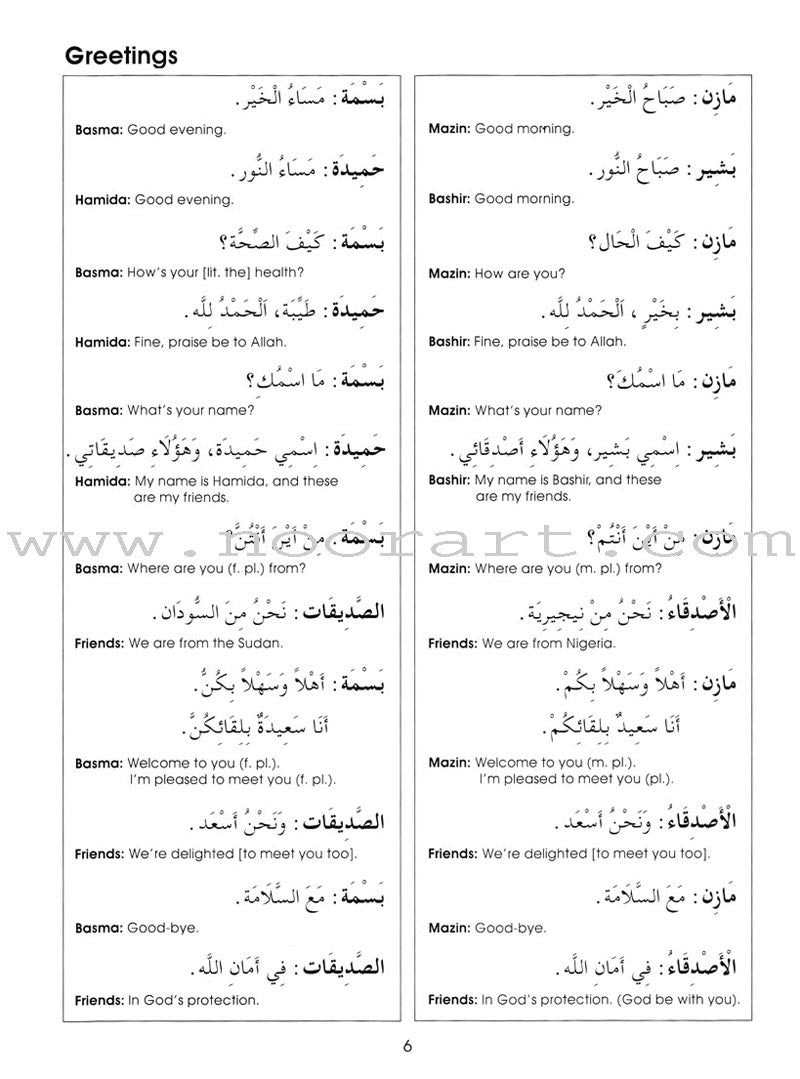 Greetings
بَسْمَة: مَسَاءُ الْخَيْر.
Basma: Good evening.
حَمِيدَة: مَسَاءُ النُّور.
Hamida: Good evening.
بَسْمَة: كَيْفَ الصِّحَّة؟
Basma: How's your [lit. the] health?
حَمِيدَة: طَيِّبَة، اَلْحَمْدُ لِلَّه.
Hamida: Fine, praise be to Allah.
بَسْمَة: مَا اسْمُكِ؟
Basma: What's your name?
حَمِيدَة: اِسْمِي حَمِيدَة، وَهَؤُلَاءِ صَدِيقَاتِي.
Hamida: My name is Hamida, and these
are my friends.
بَسْمَة: مِنْ أَيْنَ أَنْتُنَّ؟
Basma: Where are you (f. pl.) from?
الصَّدِيقَات: نَحْنُ مِنَ السُّودَان.
Friends: We are from the Sudan.
بَسْمَة: أَهْلاً وَسَهْلاً بِكُنَّ.
أَنَا سَعِيدَةٌ بِلِقَائِكُنَّ.
Basma: Welcome to you (f. pl.).
I'm pleased to meet you (f. pl.).
الصَّدِيقَات: وَنَحْنُ أَسْعَد.
Friends: We're delighted [to meet you too].
بَسْمَة: مَعَ السَّلَامَة.
Basma: Good-bye.
الصَّدِيقَات: فِي أَمَانِ اللَّه.
Friends: In God's protection.
مَازِن: صَبَاحُ الْخَيْر.
Mazin: Good morning.
بَشِير: صَبَاحُ النُّور.
Bashir: Good morning.
مَازِن: كَيْفَ الْحَال؟
Mazin: How are you?
بَشِير: بِخَيْرٍ، اَلْحَمْدُ لِلَّه.
Bashir: Fine, praise be to Allah.
مَازِن: مَا اسْمُكَ؟
Mazin: What's your name?
بَشِير: اِسْمِي بَشِير، وَهَؤُلَاءِ أَصْدِقَائِي.
Bashir: My name is Bashir, and these
are my friends.
مَازِن: مِنْ أَيْنَ أَنْتُمْ؟
Mazin: Where are you (m. pl.) from?
الْأَصْدِقَاءُ: نَحْنُ مِنْ نِيجِيرِيَة.
Friends: We are from Nigeria.
مَازِن: أَهْلاً وَسَهْلاً بِكُمْ.
أَنَا سَعِيدٌ بِلِقَائِكُمْ.
Mazin: Welcome to you (m. pl.).
I'm pleased to meet you (pl.).
الْأَصْدِقَاءُ: وَنَحْنُ أَسْعَد.
Friends: We're delighted [to meet you too].
مَازِن: مَعَ السَّلَامَة.
Mazin: Good-bye.
الْأَصْدِقَاءُ: فِي أَمَانِ اللَّه.
Friends: In God's protection. (God be with you).
www.noorart.com
6